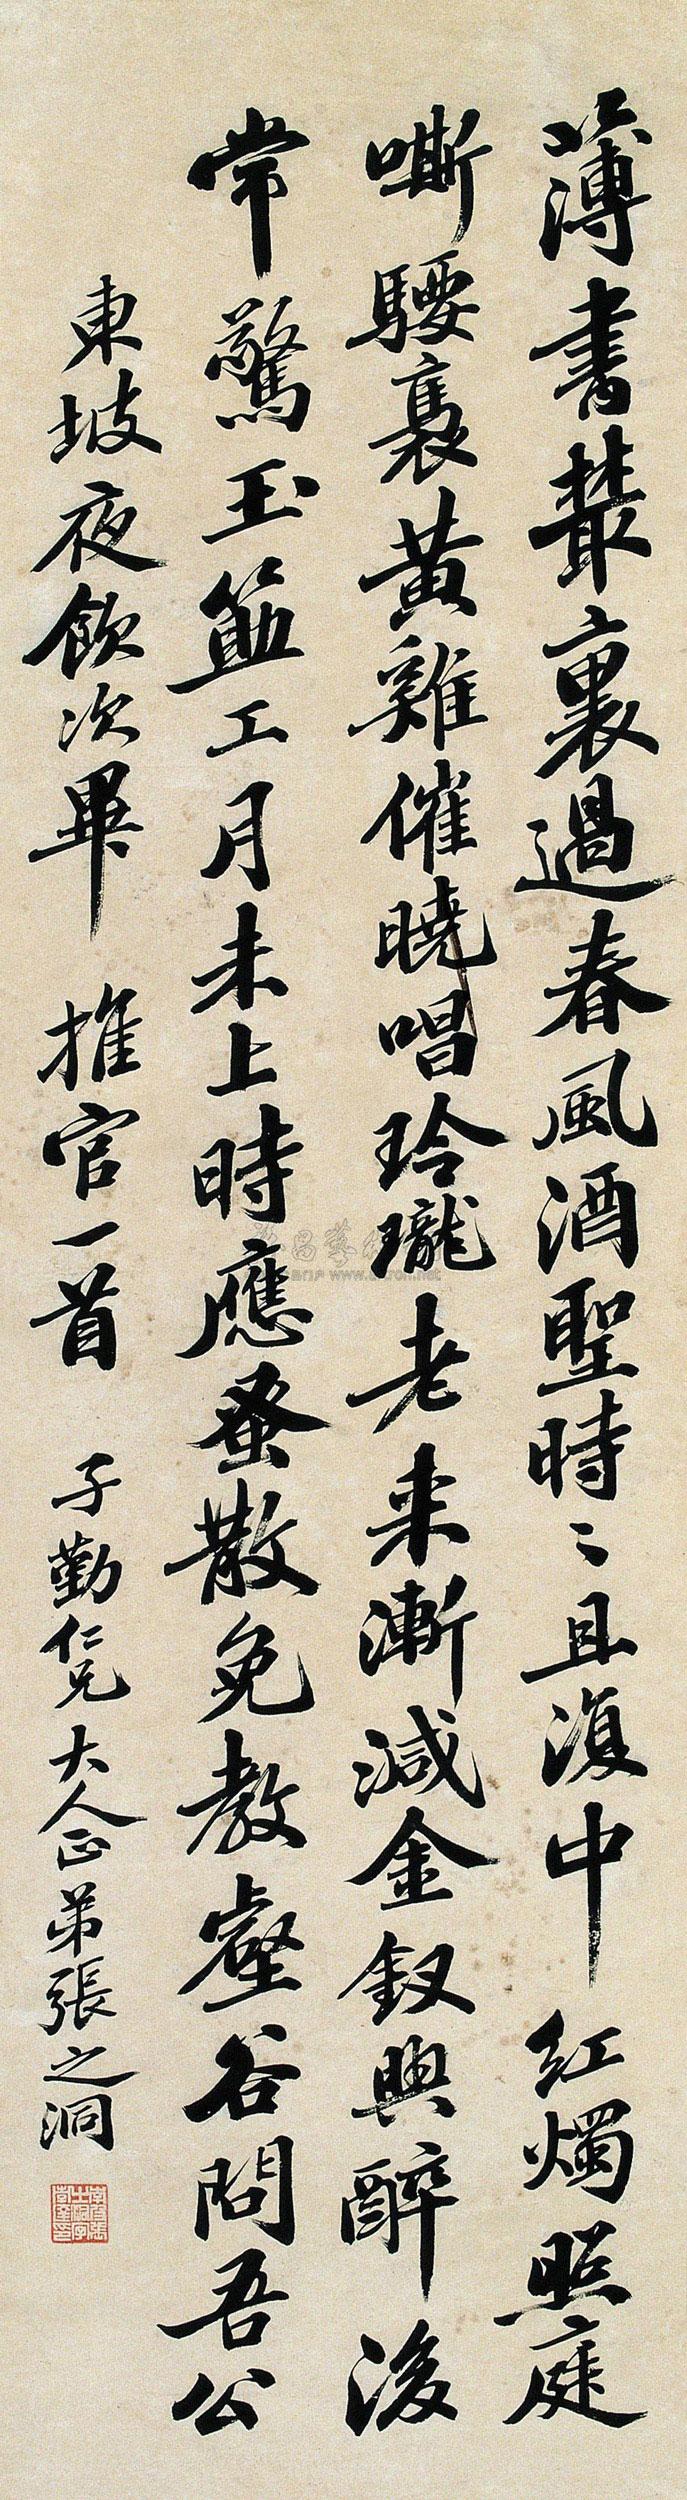 薄書叢裏過春風酒聖時〻且復中紅燭照庭
嘶騕褭黃雞催曉唱玲瓏老来漸減金釵興醉後
常驚玉筯工月未上時應蚤散免教壑谷問吾公
東坡夜飲次畢推官一首 子勤仁兄大人正 弟張之洞